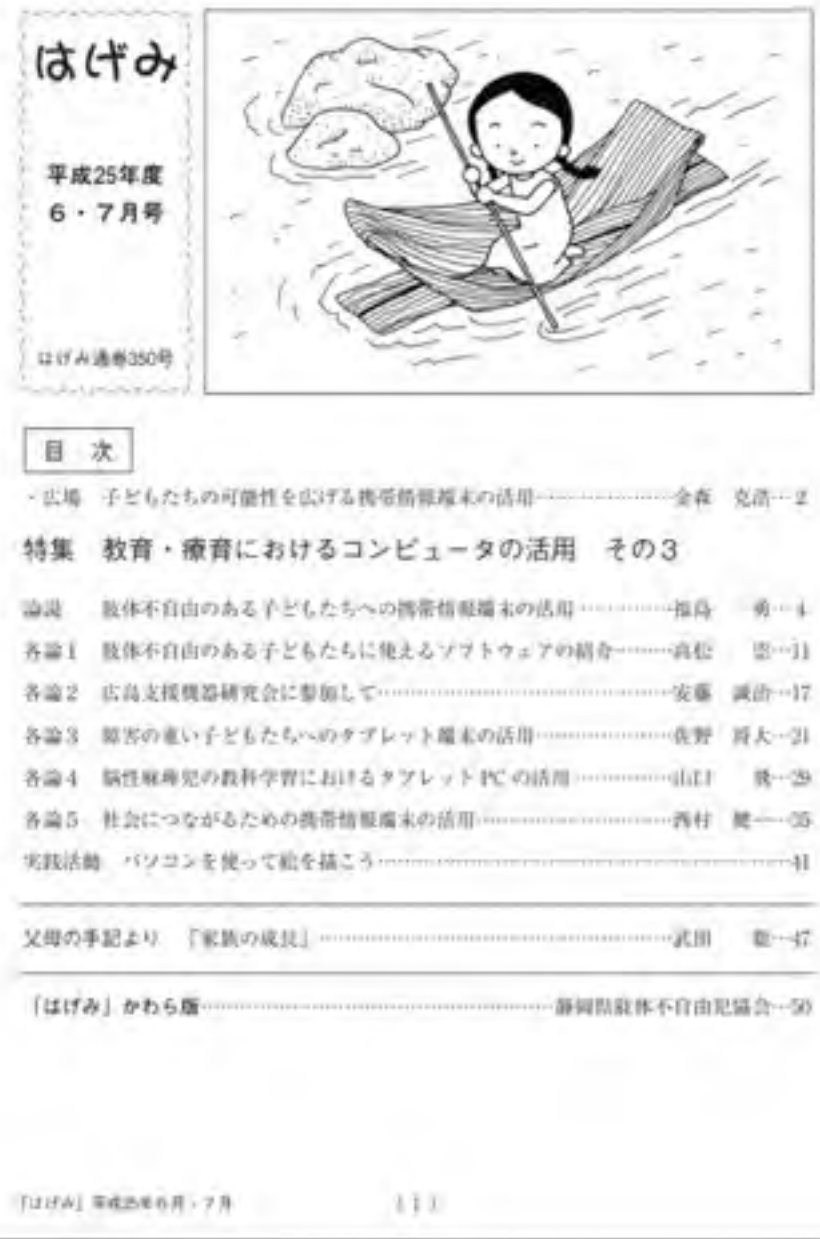 はげみ
平成25年度
6・7月号
はげみ通巻350号
目 次
・広場 子どもたちの可能性を広げる携帯情報端末の活用……………金森 克浩…2
特集 教育・療育におけるコンピュータの活用 その3
論説 肢体不自由のある子どもたちへの携帯情報端末の活用…………福島 勇…4
各論1 肢体不自由のある子どもたちに使えるソフトウェアの紹介………高松 崇…11
各論2 広島支援機器研究会に参加して……………………………………安藤 誠治…17
各論3 障害の重い子どもたちへのタブレット端末の活用………………佐野 将大…21
各論4 脳性麻痺児の教科学習におけるタブレットPCの活用……………山口 …29
各論5 社会につながるための携帯情報端末の活用………………………西村 健一…35
実践活動 パソコンを使って絵を描こう……………………………………………………41
父母の手記より 「家族の成長」………………………………………………武田 …47
「はげみ」かわら版………………………………………………静岡県肢体不自由児協会…50
「はげみ」平成25年6月・7月
( 1 )